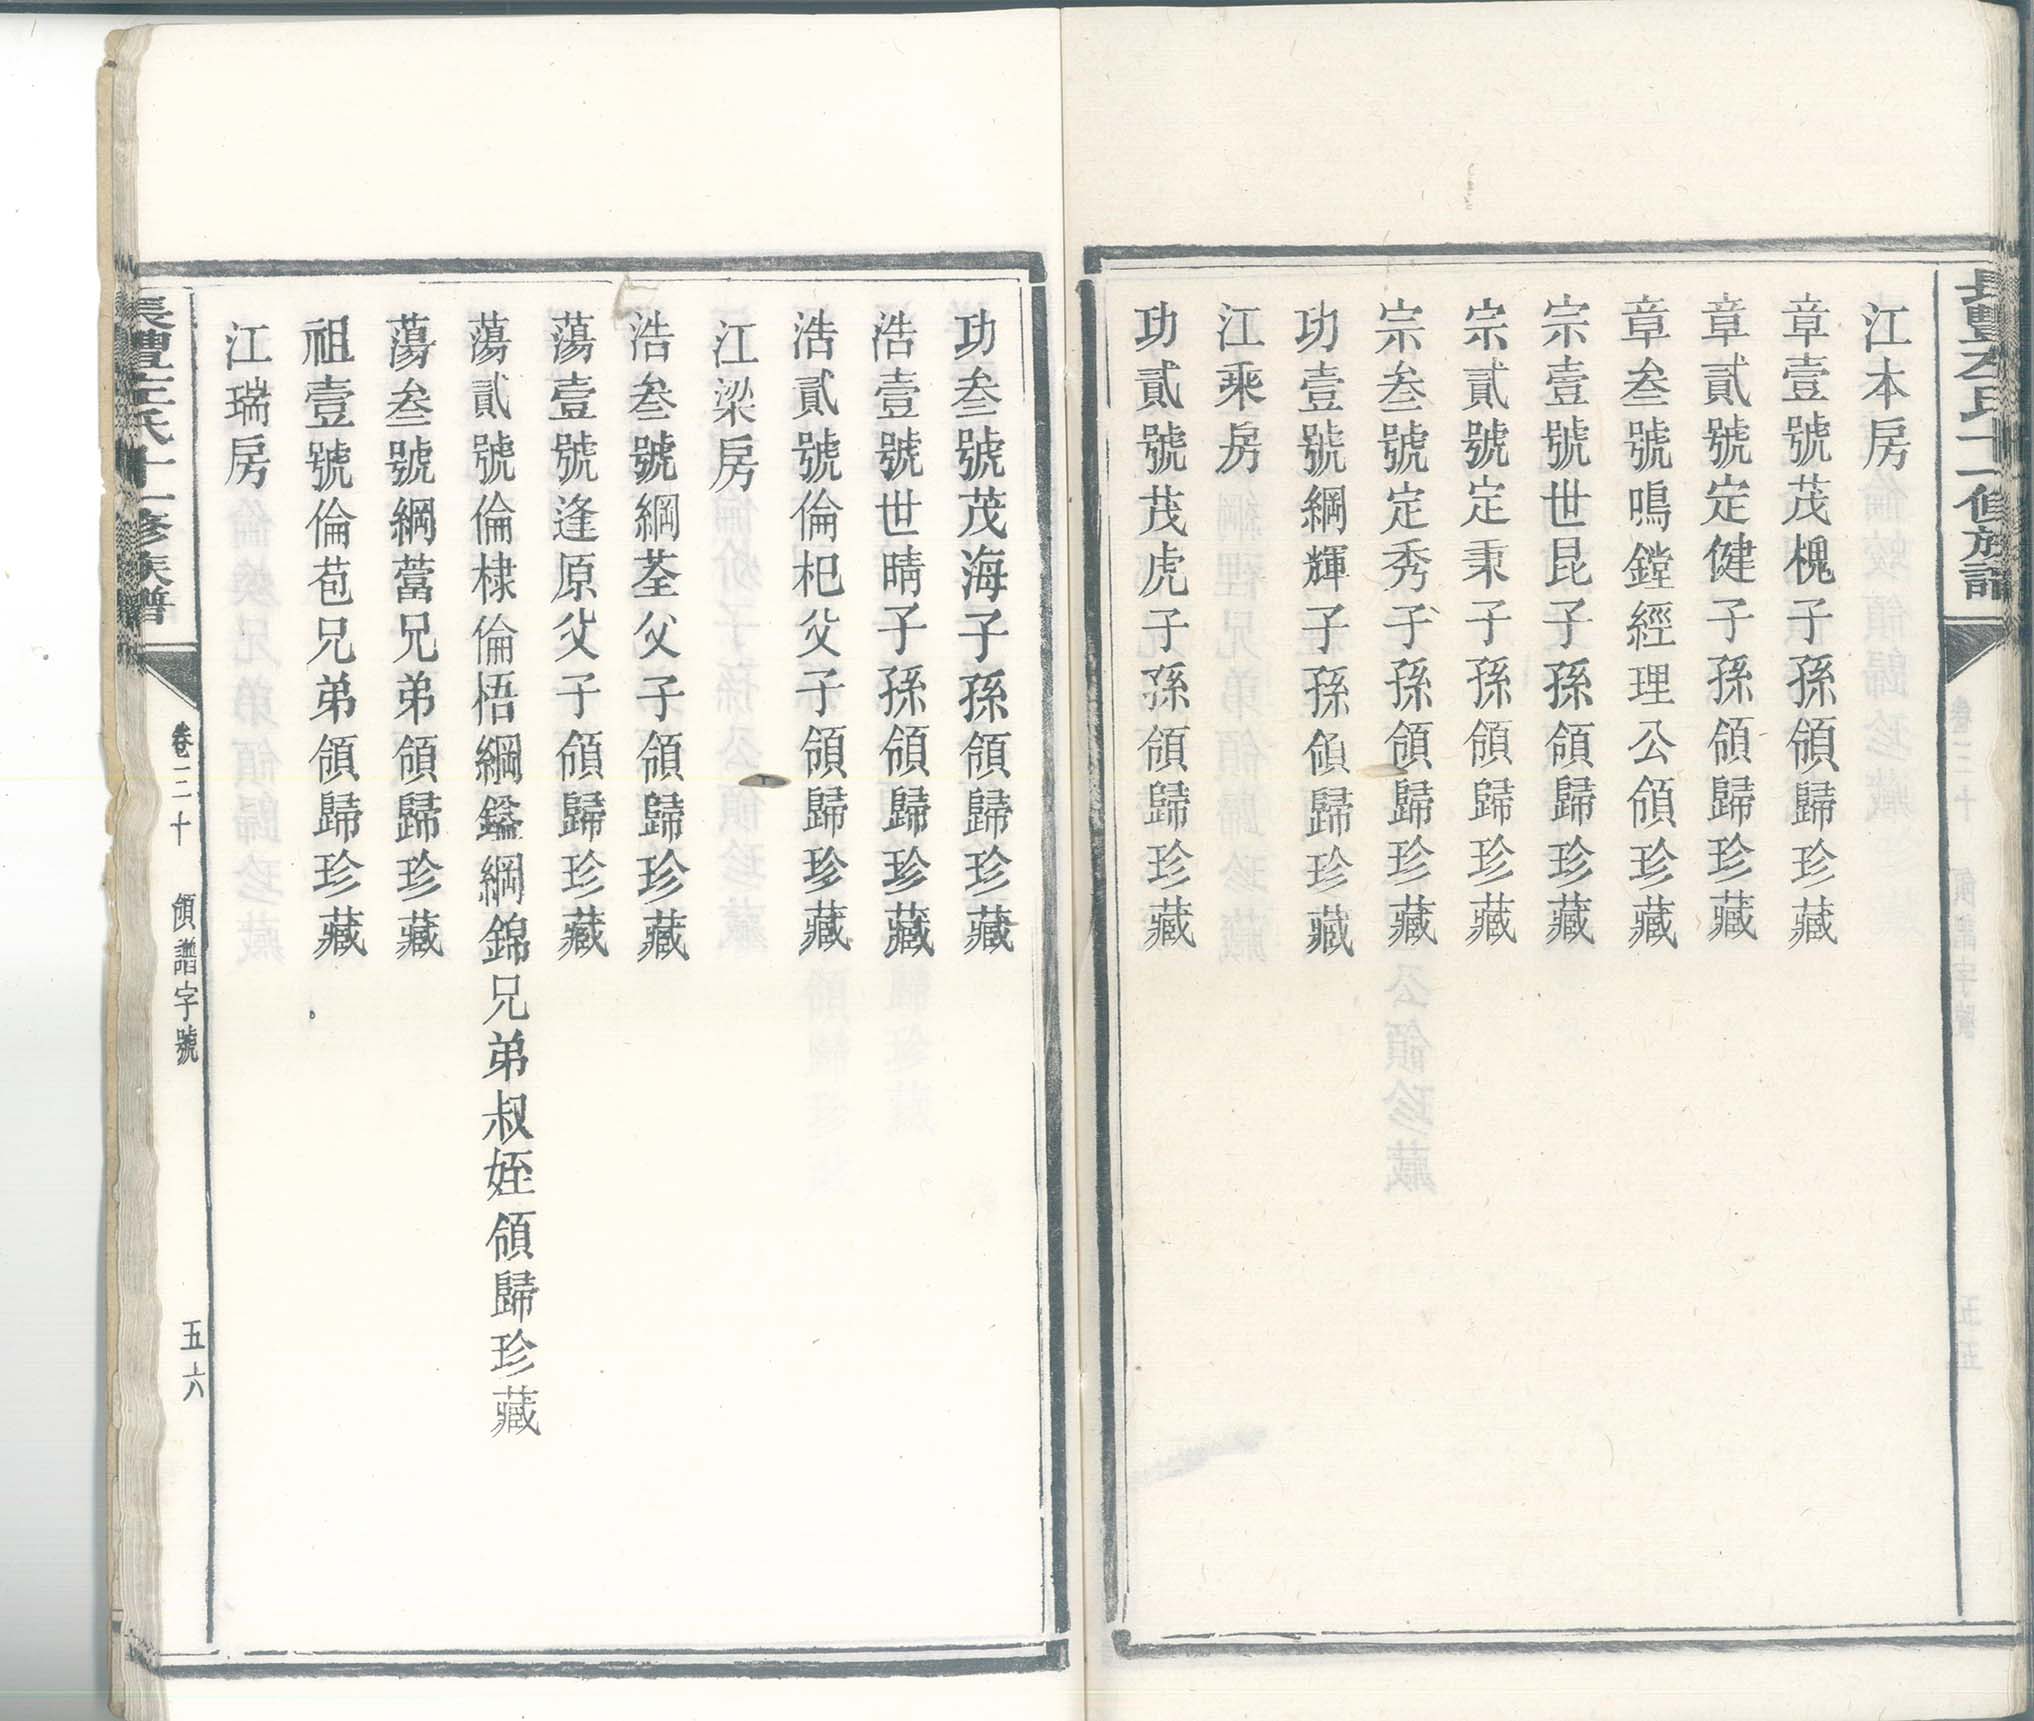 江本房
章壹號茂槐子孫領歸珍藏
章貳號定健子孫領歸珍藏
章叁號鳴鏜經理公領珍藏
宗壹號世昆子孫領歸珍藏
宗貳號定秉子孫領歸珍藏
宗叁號定秀子孫領歸珍藏
功壹號綱輝子孫領歸珍藏
江乘房
功貳號茂虎子孫領歸珍藏
功叁號茂海子孫領歸珍藏
浩壹號世晴子孫領歸珍藏
浩貳號倫杞父子領歸珍藏
江梁房
浩叁號綱荃父子領歸珍藏
蕩壹號逢原父子領歸珍藏
蕩貳號倫棣倫梧綱鎰綱錦兄弟叔姪領歸珍藏
蕩叁號綱蕾兄弟領歸珍藏
祖壹號倫苞兄弟領歸珍藏
江瑞房
左氏十一修族譜
卷三十 領譜字號 五六